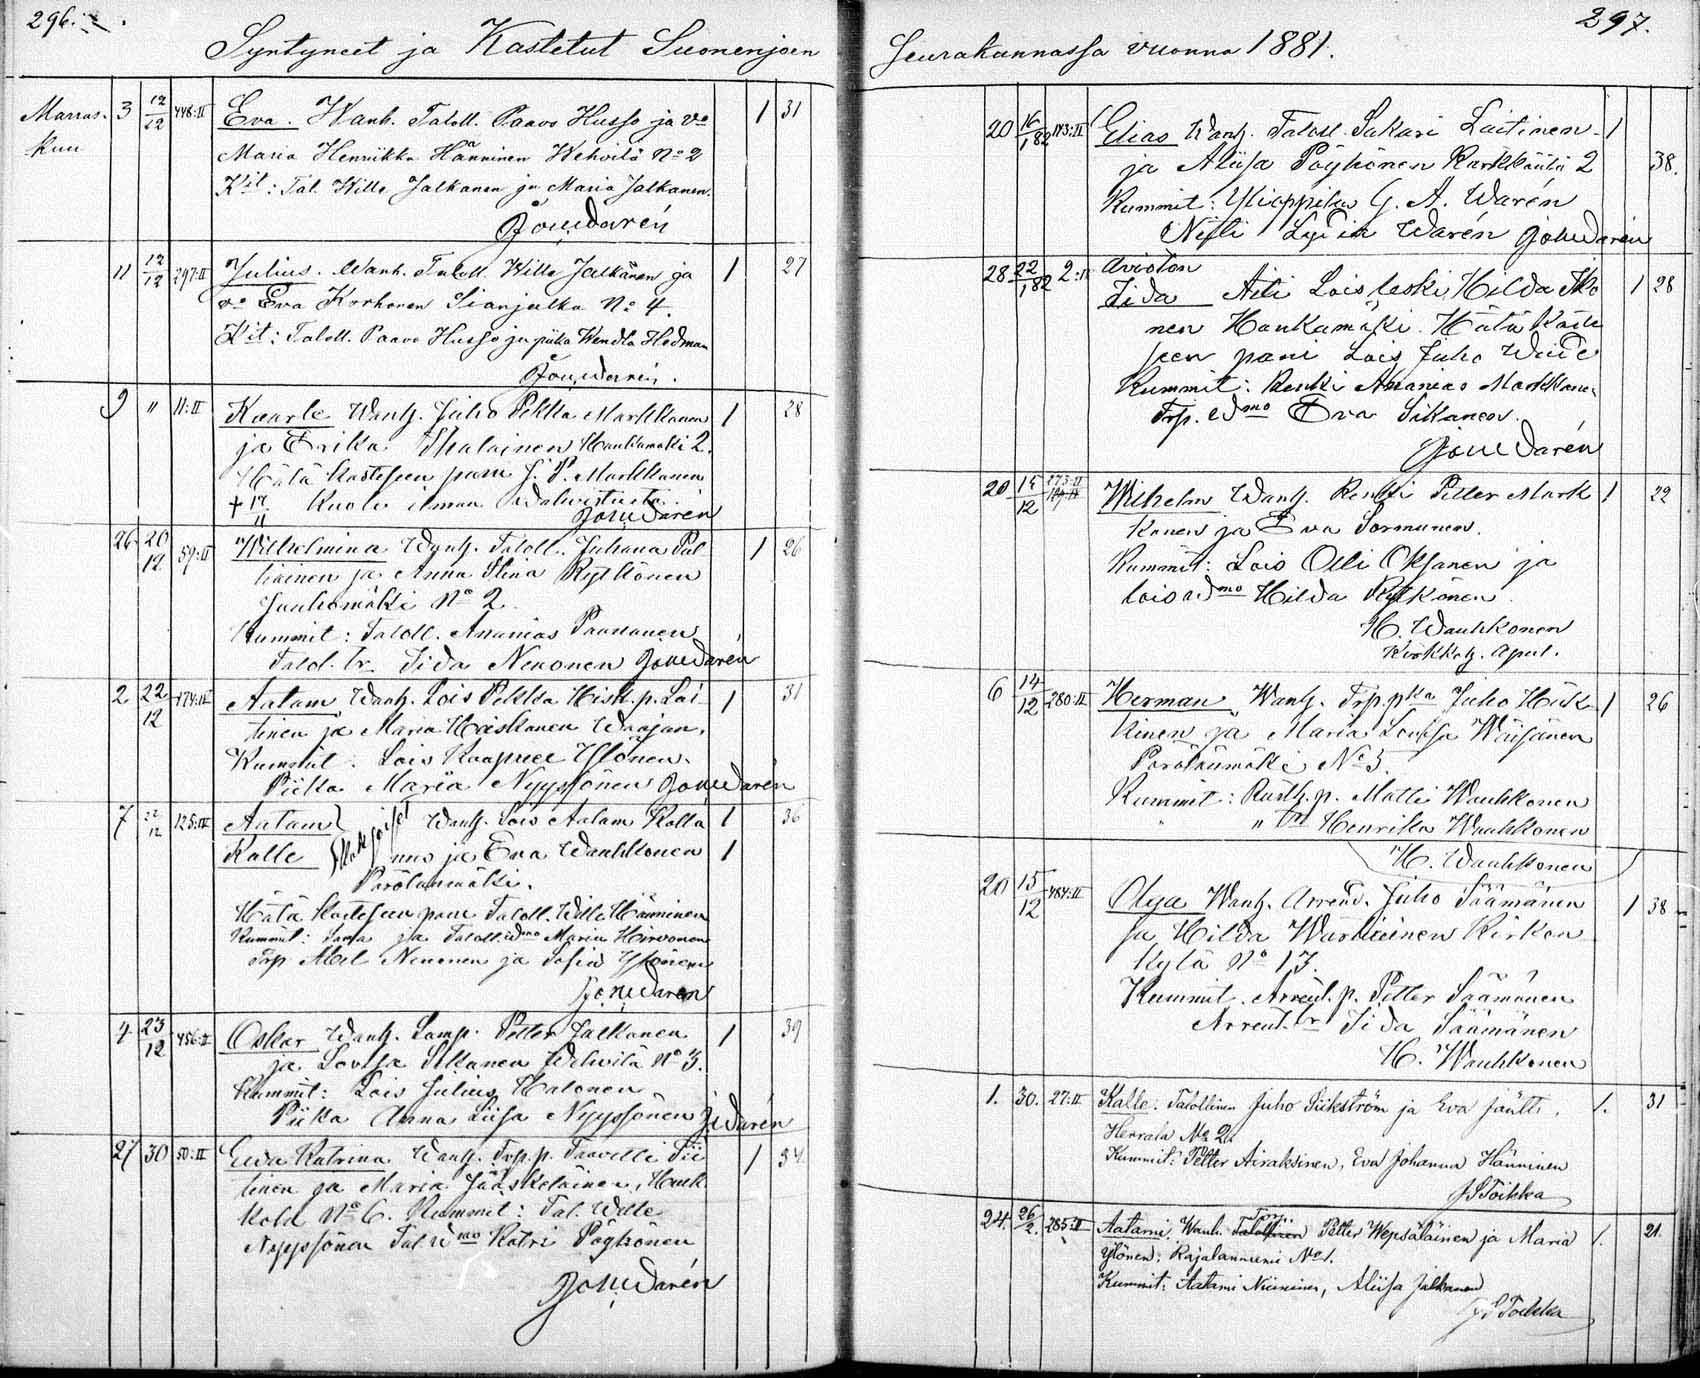 296.
Syntyneet ja Kastetut Suonenjoen
Marras- 3 12/12 448:II Eva. Wanh. Taloll. Paavo Husso ja vo 1 31
kuu Maria Henriikka Hänninen Wehvilä No 2
Kit: Tal. Wille Jalkanen ja Maria Jalkanen.
Joh. Warén
11 12/12 297:II Julius. Wanh. Taloll. Wille Jalkanen ja 1 27
vo Eva Korhonen Sianjalka No 4.
Kit: Taloll. Paavo Husso ja piika Wendla Hedman
Joh. Warén.
9 " 11:II Kaarle Wanh. Juho Pekka Markkanen 1 28
ja Erika Ihalainen Haukkamäki 2.
Hätä kasteseen pani J. P. Markkanen
† 17/11 Kuoli ilman vahvistusta.
Joh. Warén
26 20/12 59:II Wilhelmina Wanh. Taloll. Juhana Pul 1 26
liainen ja Anna Stina Rytkönen
Jauhomäki No 2.
Kummit: Taloll. Ananias Paananen
Talol. tr. Iida Nenonen Joh. Warén
2 22/12 474:II Aatam Wanh. Lois Pekka Heisk. p. Lai 1 31
tinen ja Maria Heiskanen Waajan.
Kummit: Lois Kaapree Ylönen.
Piika Maria Nyyssönen Joh. Warén
7 22/12 125:II Aatam } Kaksoiset Wanh. Lois Aatam Kolla 1 36
Kalle nus ja Eva Wauhkonen 1
Pörölänmäki.
Hätä kasteseen pani Taloll. Wille Hänninen
Kummit: Sama ja Taloll. vmo Maria Hirvonen
Trp Abel Nenonen ja Sofia Ylönen
Joh. Warén
4 23/12 456:II Oskar Wanh. Lamp. Petter Jalkanen 1 39
ja Lovisa Sikanen Wehvilä No 3.
Kummit: Lois Julius Halonen
Piika Anna Liisa Nyyssönen J. Warén
27 30 50:II Ewa Katrina Wanh. Trp. p. Taavetti Tii 1 34
tinen ja Maria Jääskeläinen, Hauk
kola No 6. Kummit: Tal. Wille
Nyyssönen Tal vmo Katri Pöyhönen
Joh. Warén
297.
Seurakunnassa vuonna 1881.
20 16/1 82 173:II Elias Wanh. Taloll. Sakari Laitinen 1
ja Aliisa Pöyhönen Karkkäälä 2 38.
Kummit: Ylioppilas G. A. Warén
Neiti Lydia Warén Joh. Warén
28 22/1 82 2:II Avioton
Iida Äiti Lois leski Hilda Iko 1 28
nen Haukamäki. Hätä kaste
seen pani Lois Juho Weide
Kummit: Renki Ananias Markkanen
Trp. vmo Eva Sikanen.
Joh. Warén
20 15/12 273:II Wilhelm Wanh. Renki Petter Mark 1 22
kanen ja Eva Sormunen.
Kummit: Lois Olli Oksanen ja
lois vmo Hilda Rytkönen.
H. Wauhkonen
Kirkkoh. apul.
6 14/12 280:II Herman Wanh. Trp. pka Juho Huk 1 26
kinen ja Maria Lovisa Wäisänen
Pörölänmäki No 5.
Kummit: Rusth. p. Matti Wauhkonen
" " tr Henrika Wauhkonen
H. Wauhkonen
20 15/12 484:II Olga Wanh. Arrend. Juho Säämänen 1 38
ja Hilda Wartiainen Kirkon
kylä No 13.
Kummit. Arrent. p. Petter Säämänen
Arrent. tr Iida Säämänen
H. Wauhkonen
1. 30. 27:II Kalle. Talollinen Juho Siikström ja Eva Jäntti. 1. 31
Herrala No 2.
Kummit: Petter Airaksinen, Eva Johanna Hänninen
J S Toikka
24. 26/2. 285:II Aatami. Wanh. Torp. Petter Wepsäläinen ja Maria 1. 21.
Ylönen: Rajalanniemi No 1.
Kummit: Aatami Niininen, Aliisa Jalkanen
J S Toikka